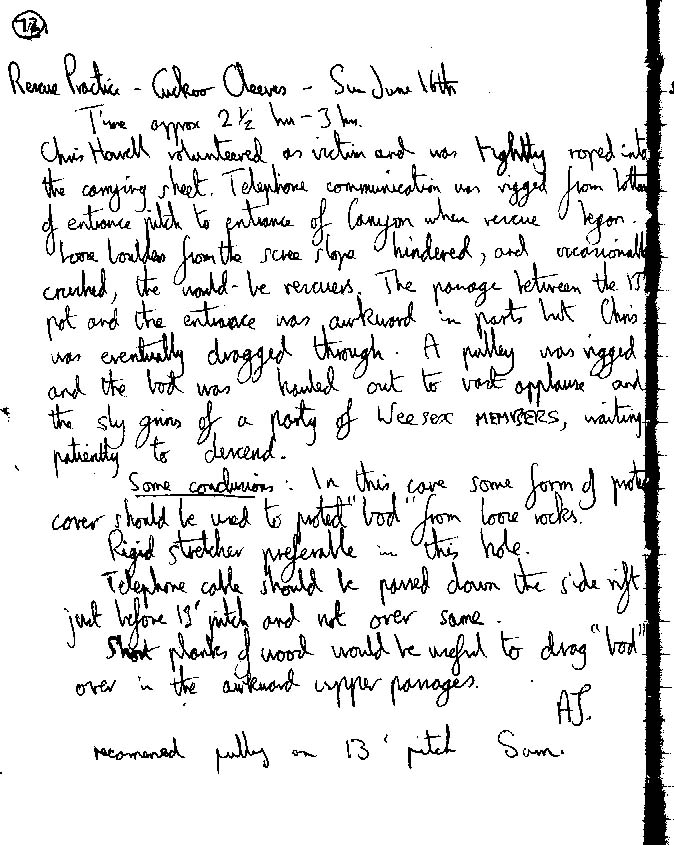 72
Rescue Practice - Cuckoo Cleeves - Sun June 16th
Time approx 2½ hrs - 3 hrs.
Chris Howell volunteered as victim and was tightly roped into
the carrying sheet. Telephone communication was rigged from bottom
of entrance pitch to entrance of Canyon when rescue began.
Loose boulders from the scree slope hindered, and occasionally
crushed, the would-be rescuers. The passage between the 13'
pot and the entrance was awkward in parts but Chris
was eventually dragged through. A pulley was rigged
and the bod was hauled out to vast applause and
the sly grins of a party of Weesex MEMBERS, waiting
patiently to descend.
Some conclusions: In this cave some form of
cover should be used to protect "bod" from loose rocks.
Rigid stretcher preferable in this hole.
Telephone cable should be passed down the side rift
just before 13' pitch and not over same.
Short planks of wood would be useful to drag "bod"
over in the awkward upper passages.
AJ.
recomened pulley on 13' pitch Sam.